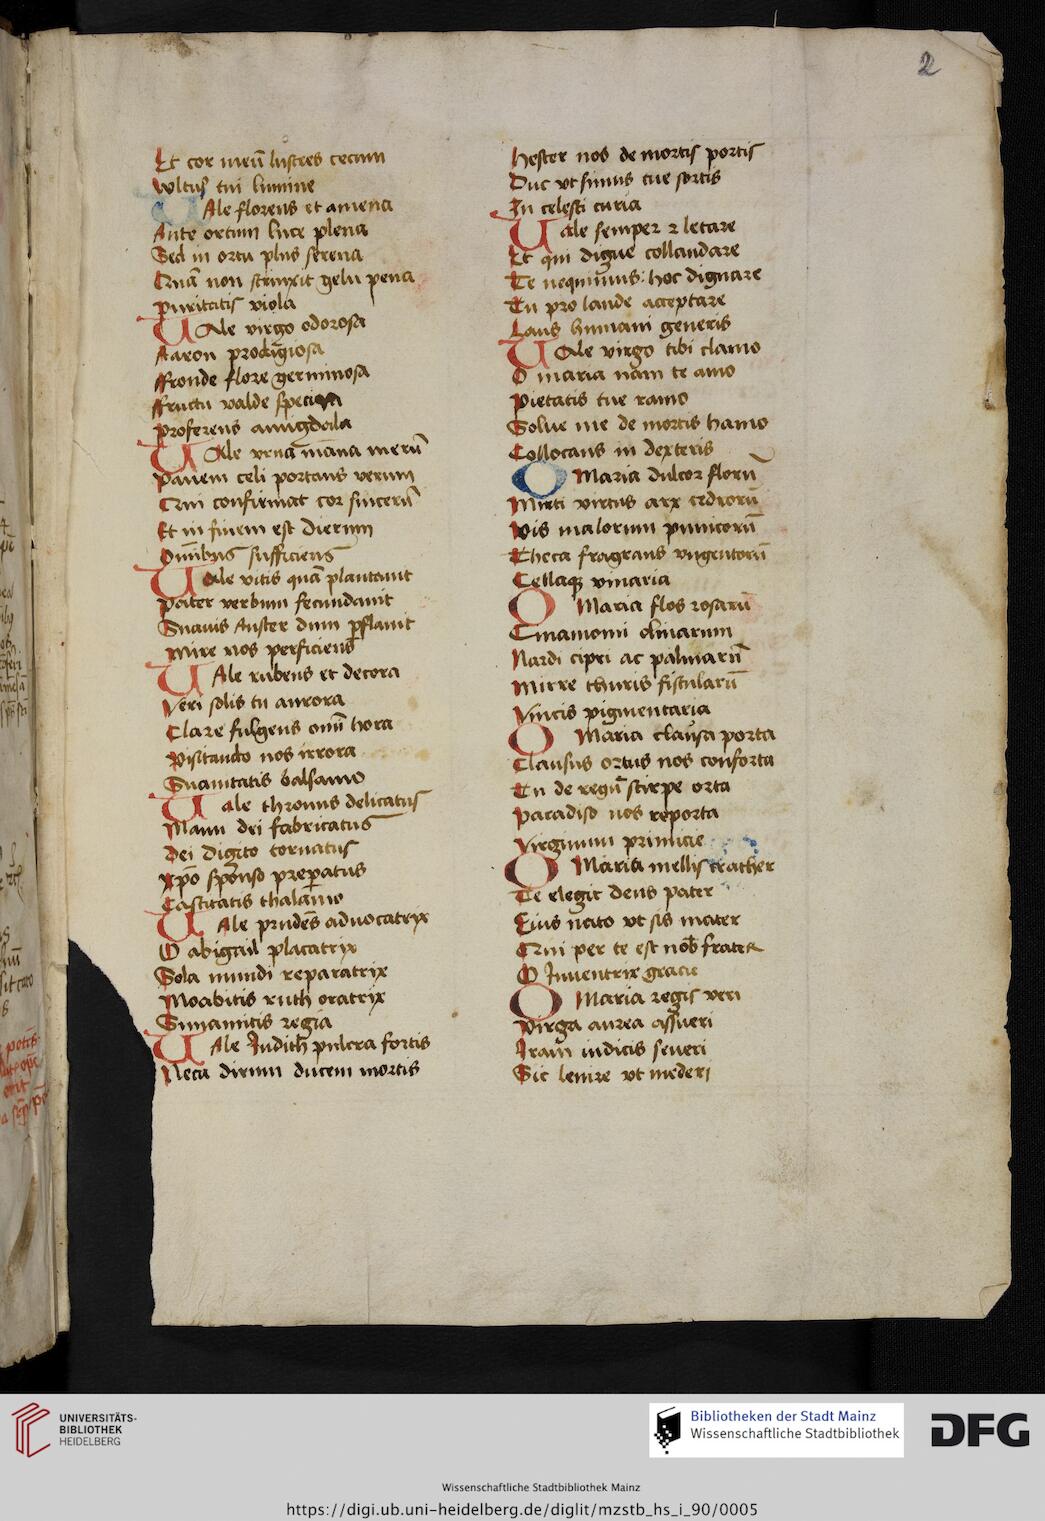 2
Et cor meū lustres cecum
Wltus tui lumine
Ale florens et amena
Ante ortum luce plena
Sed in ortu plus serena
Quā non strinxit gelu pena
Puritatis viola
UAle virgo odorosa
Aaron prodigiosa
ffronde flore germinosa
ffructu valde speciosa
Proferens amigdala
UAle vrna māna merū
Panem celi portans verum
Qui confirmat cor sincerū
Et in finem est dierum
Omībus sufficiens
UAle vitis quā plantauit
Pater verbum fecundauit
Suauis Auster dum pflauit
Mire nos perficiens
UAle rubens et decora
Veri solis tu aurora
Clare fulgens omī hora
Visitando nos irrora
Suauitatis balsamo
Uale thronus delicatus
Manu dei fabricatus
Dei digito tornatus
xpō sponso preparatus
Castitatis thalamo
UAle prudēs aduocatrix
O abigail placatrix
Sola mundi reparatrix
Moabitis ruth oratrix
Sunamitis regia
UAle Judith pulcra fortis
Necā dirum ducem mortis
Hester nos de mortis portis
Duc vt simus tue sortis
In celesti curia
Uale semper ⁊ letare
Et qui digne collaudare
Te nequimus: hoc dignare
Tu pro laude acceptare
Laus humani generis
UAle virgo tibi clamo
O maria nam te amo
Pietatis tue ramo
Solue me de mortis hamo
Collocans in dexteris
O Maria dulcor florū
Mirti virtus arx cedrorū
Vis malorum punicorū
Theca fragrans vngentorū
Cellaqꝫ vinaria
O Maria flos rosarū
Cinamomi oliuarum
Nardi cipri ac palmarū
Mirre thuris fistularū
Vincis pigmentaria
O Maria clausa porta
Clausus ortus nos conforta
Tu de regū stirpe orta
Paradiso nos reporta
Virginum primicie
O Maria mellis crather
Te elegit deus pater
Eius nato vt sis mater
Qui per te est nob frater
O Inuentrix gracie
O Maria regis veri
Virga aurea assueri
Iram iudicis seueri
Sic lenire vt mederi
UNIVERSITÄTS-
BIBLIOTHEK
HEIDELBERG
Bibliotheken der Stadt Mainz
Wissenschaftliche Stadtbibliothek
DFG
Wissenschaftliche Stadtbibliothek Mainz
https://digi.ub.uni-heidelberg.de/diglit/mzstb_hs_i_90/0005